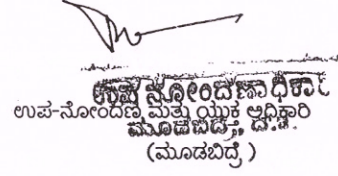 ಉಪ ನೋಂದಣಾಧಿಕಾರಿ
ಉಪ-ನೋಂದಣಿ ಮತ್ತು ಯುಕ್ತ ಅಧಿಕಾರಿ
ಮೂಡಬಿದ್ರೆ, ದ.ಕ.
(ಮೂಡಬಿದ್ರೆ )